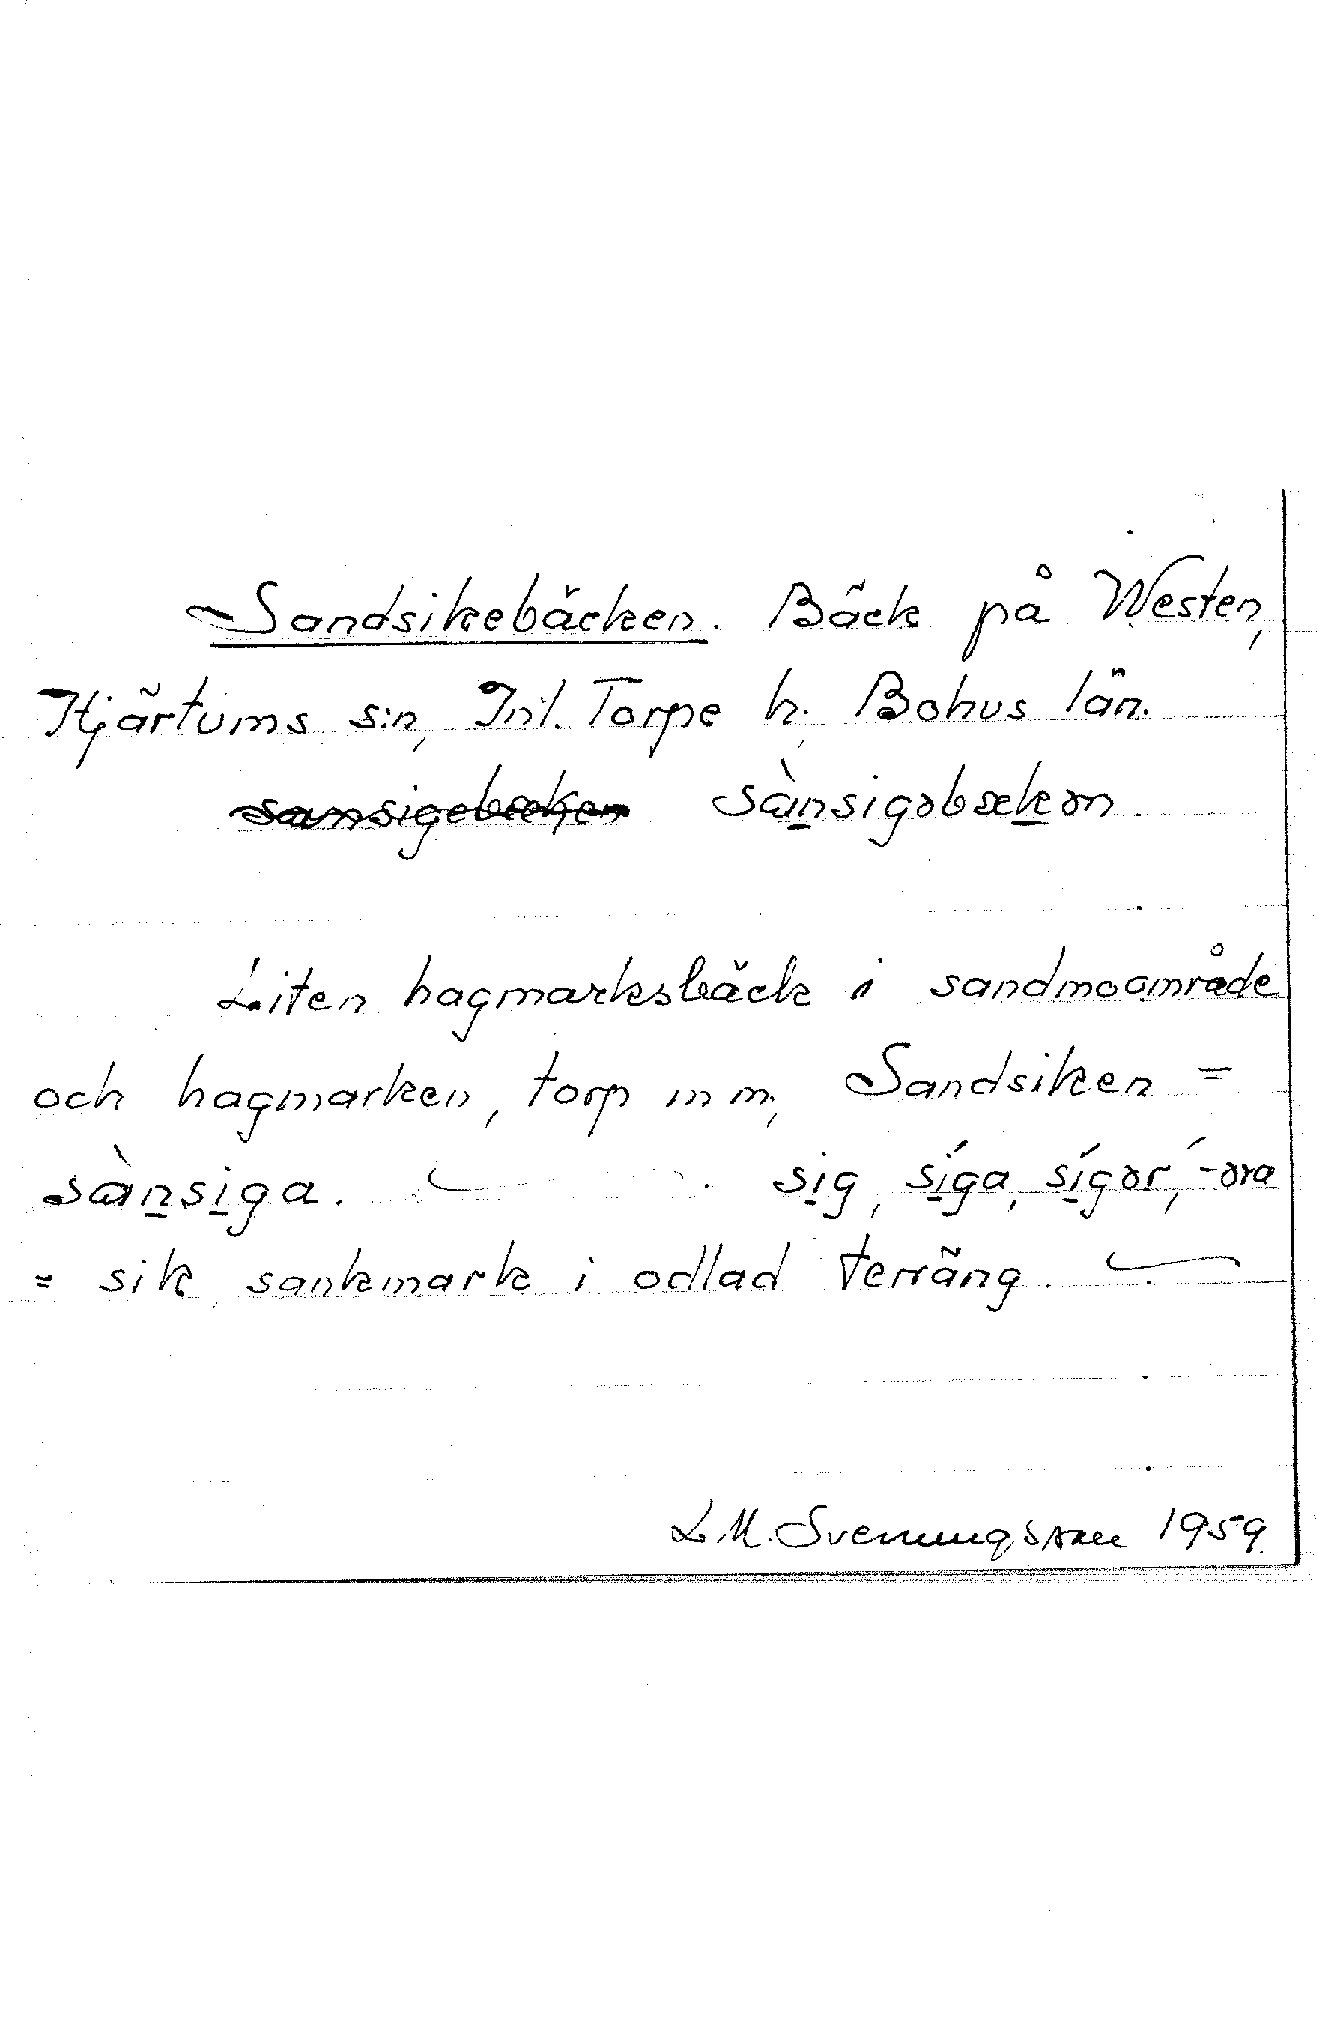 Sandsikebäcken. Bäck på Westen,
Hjärtums s:n, Inl. Torpe h. Bohus län.
sansigebecken sànsigəbækən
Liten hagmarksbäck i sandmoområde
och hagmarken, torp m m, Sandsiken =
sànsiga. sig, síga, sígər, ́-əra
= sik sankmark i odlad terräng.
L. M. Svenungsson 1959